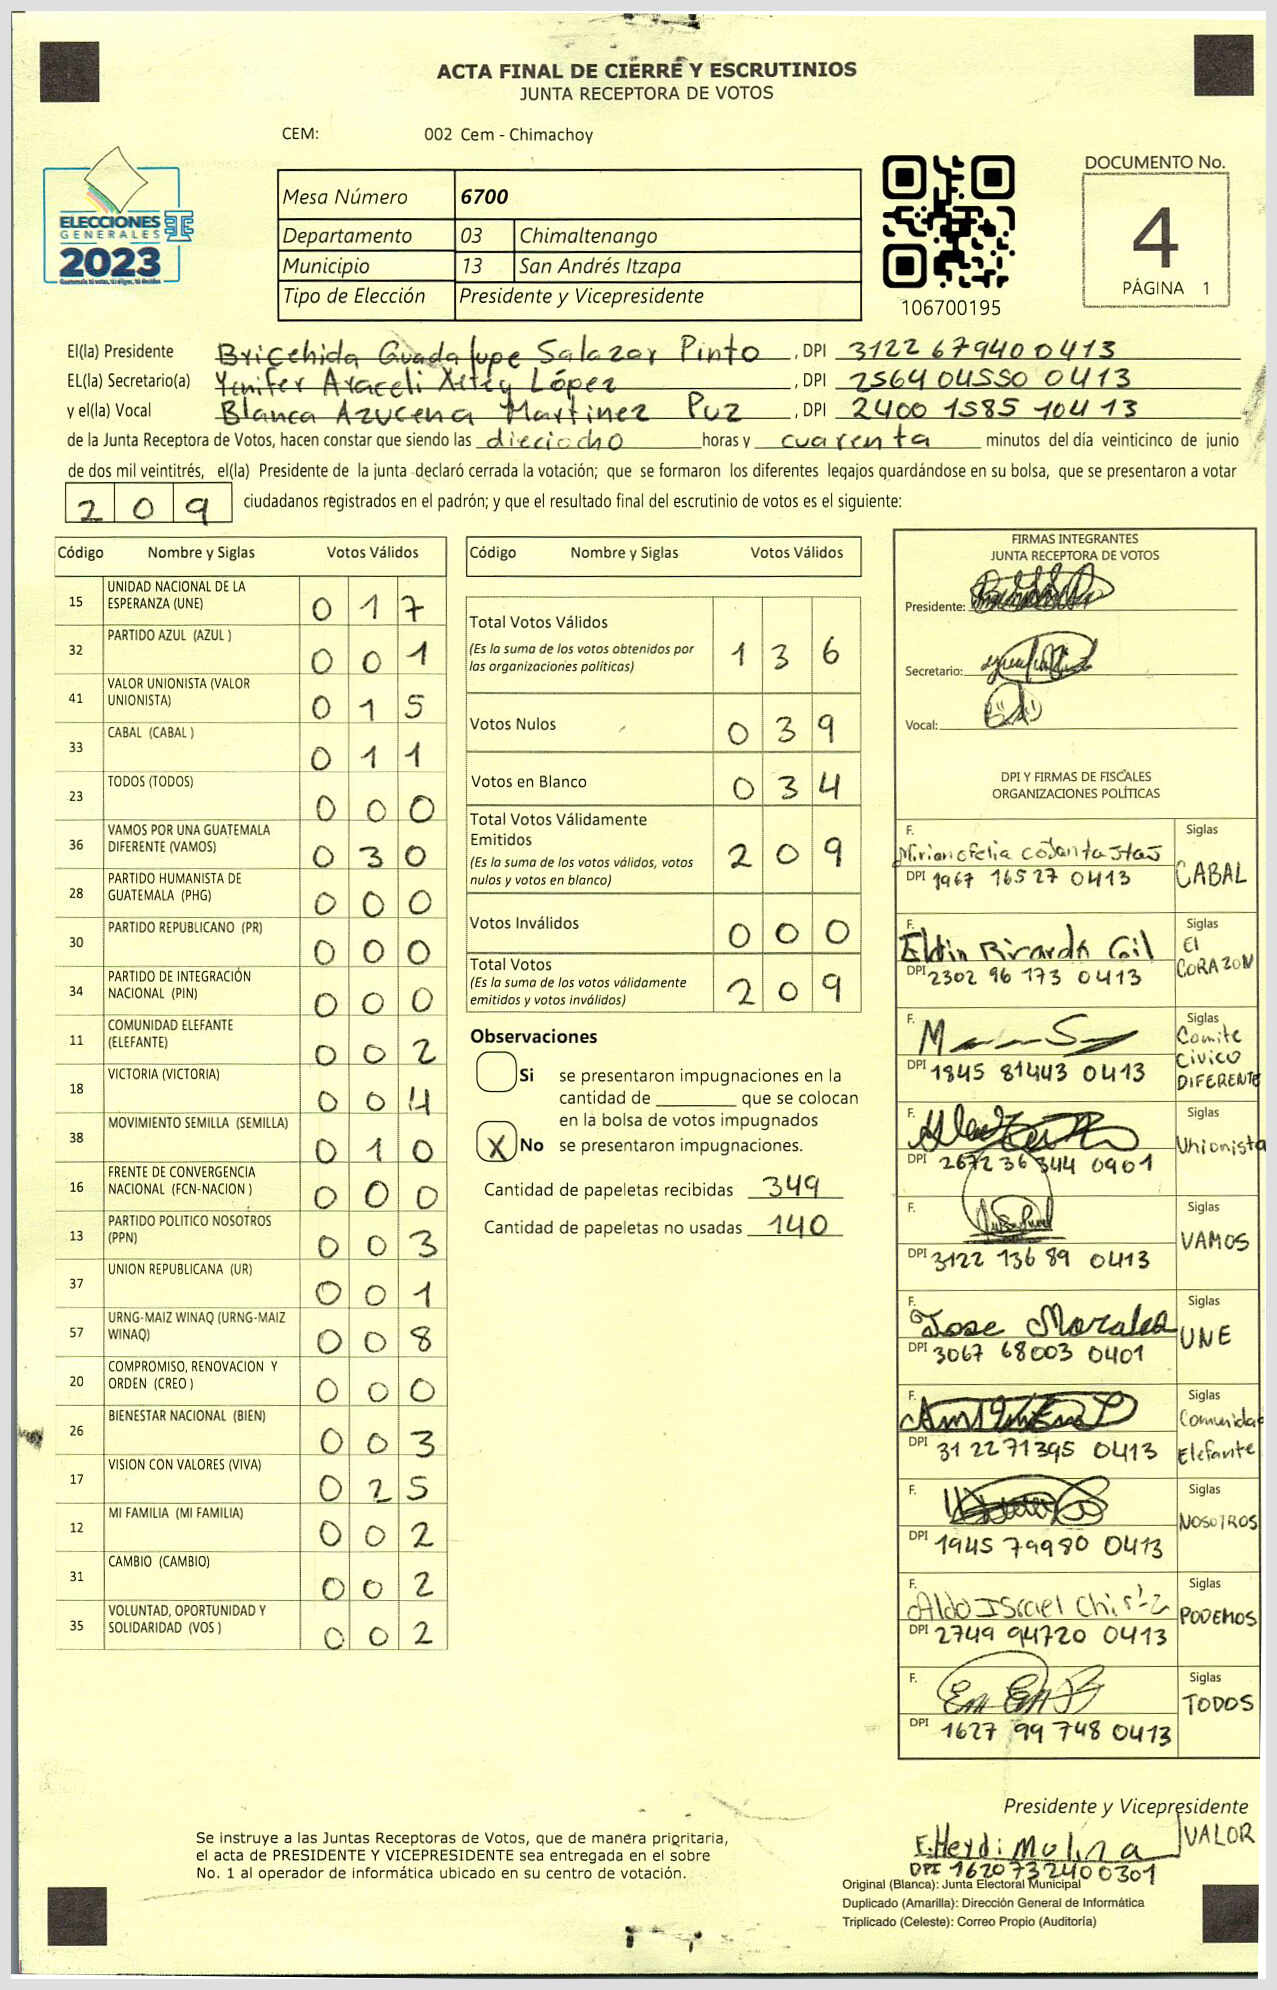 ACTA FINAL DE CIERRE Y ESCRUTINIOS
JUNTA RECEPTORA DE VOTOS
CEM: 002 Cem - Chimachoy
ELECCIONES
GENERALES
2023
Mesa Número 6700
Departamento 03 Chimaltenango
Municipio 13 San Andrés Itzapa
Tipo de Elección Presidente y Vicepresidente
106700195
DOCUMENTO No.
4
PÁGINA 1
El(la) Presidente Bricehida Guadalupe Salazar Pinto, DPI 3122 67940 0413
EL(la) Secretario(a) Yenifer Araceli López, DPI 2564 04550 0413
y el(la) Vocal Blanca Azucena Martinez Puz, DPI 2400 1585 10413
de la Junta Receptora de Votos, hacen constar que siendo las dieciocho horas y cuarenta minutos del día veinticinco de junio
de dos mil veintitrés, el(la) Presidente de la junta declaró cerrada la votación; que se formaron los diferentes legajos quardándose en su bolsa, que se presentaron a votar
209 ciudadanos registrados en el padrón; y que el resultado final del escrutinio de votos es el siguiente:
Código Nombre y Siglas Votos Válidos
15 UNIDAD NACIONAL DE LA ESPERANZA (UNE) 017
32 PARTIDO AZUL (AZUL ) 001
41 VALOR UNIONISTA (VALOR UNIONISTA) 015
33 CABAL (CABAL ) 011
23 TODOS (TODOS) 000
36 VAMOS POR UNA GUATEMALA DIFERENTE (VAMOS) 030
28 PARTIDO HUMANISTA DE GUATEMALA (PHG) 000
30 PARTIDO REPUBLICANO (PR) 000
34 PARTIDO DE INTEGRACIÓN NACIONAL (PIN) 000
11 COMUNIDAD ELEFANTE (ELEFANTE) 002
18 VICTORIA (VICTORIA) 004
38 MOVIMIENTO SEMILLA (SEMILLA) 010
16 FRENTE DE CONVERGENCIA NACIONAL (FCN-NACION ) 000
13 PARTIDO POLITICO NOSOTROS (PPN) 003
37 UNION REPUBLICANA (UR) 001
57 URNG-MAIZ WINAQ (URNG-MAIZ WINAQ) 008
20 COMPROMISO, RENOVACION Y ORDEN (CREO ) 000
26 BIENESTAR NACIONAL (BIEN) 003
17 VISION CON VALORES (VIVA) 025
12 MI FAMILIA (MI FAMILIA) 002
31 CAMBIO (CAMBIO) 002
35 VOLUNTAD, OPORTUNIDAD Y SOLIDARIDAD (VOS ) 002
Código Nombre y Siglas Votos Válidos
Total Votos Válidos 136
(Es la suma de los votos obtenidos por
las organizaciones políticas)
Votos Nulos 039
Votos en Blanco 034
Total Votos Válidamente
Emitidos 209
(Es la suma de los votos válidos, votos
nulos y votos en blanco)
Votos Inválidos 000
Total Votos 209
(Es la suma de los votos válidamente
emitidos y votos inválidos)
Observaciones
Si se presentaron impugnaciones en la
cantidad de ________ que se colocan
en la bolsa de votos impugnados
X No se presentaron impugnaciones.
Cantidad de papeletas recibidas 349
Cantidad de papeletas no usadas 140
FIRMAS INTEGRANTES
JUNTA RECEPTORA DE VOTOS
Presidente:
Secretario:
Vocal:
DPI Y FIRMAS DE FISCALES
ORGANIZACIONES POLÍTICAS
F. Siglas
DPI 1967 16527 0413 CABAL
F. Eldin Ricardo Gil Siglas El
DPI 2302 96 173 0413 CORAZON
F. Siglas Comite
DPI 1845 81443 0413 Civico DIFERENTE
F. Siglas
DPI 2672 36 344 0901 Unionista
F. Siglas
DPI 3122 136 89 0413 VAMOS
F. Jose Morales Siglas
DPI 3067 68003 0401 UNE
F. Siglas Comunidad
DPI 31 22 71395 0413 Elefante
F. Siglas
DPI 1945 79980 0413 NOSOTROS
F. Aldo Israel Siglas
DPI 2749 94720 0413 PODEMOS
F. Siglas
DPI 1627 99 748 0413 TODOS
Presidente y Vicepresidente
F. Heydi Molina VALOR
DPI 1620732400301
Se instruye a las Juntas Receptoras de Votos, que de manera prioritaria,
el acta de PRESIDENTE Y VICEPRESIDENTE sea entregada en el sobre
No. 1 al operador de informática ubicado en su centro de votación.
Original (Blanca): Junta Electoral Municipal
Duplicado (Amarilla): Dirección General de Informática
Triplicado (Celeste): Correo Propio (Auditoría)